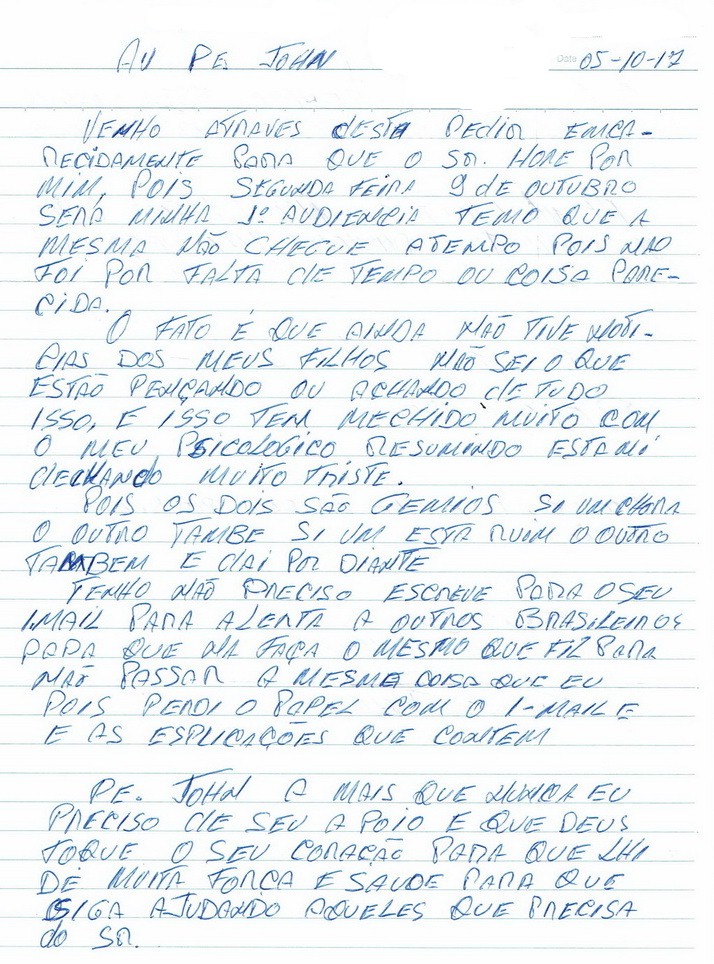 AU PE JOHN
Date 05-10-17
VENHO ATRAVES DESTA PEDIR ENCA-
RECIDAMENTE PARA QUE O SR. HORE POR
MIM, POIS SEGUNDA FEIRA 9 de OUTUBRO
SERÁ MINHA 1º AUDIENCIA TEMO QUE A
MESMA NÃO CHEGUE ATEMPO POIS NÃO
FOI POR FALTA dE TEMPO OU COISA PARE-
CIDA.
O FATO É QUE AINDA NÃO TIVE NOTI-
CIAS DOS MEUS FILHOS NÃO SEI O QUE
ESTÃO PENÇANDO OU ACHANDO dE TUDO
ISSO, E ISSO TEM MECHIDO MUITO COM
O MEU PSICOLOGICO RESUMINDO ESTA MI
dECHANdO MUITO TRISTE.
POIS OS DOIS SÃO GEMIOS SI UM CHORA
O OUTRO TAMBE SI UM ESTA RUIM O OUTRO
TAMBEM E dAI POR DIANTE
TENHO NÃO PRECISO ESCREVE PARA O SEU
IMAIL PARA ALERTA A OUTROS BRASILEIROS
PARA QUE NA FAÇA O MESMO QUE FIZ PARA
NÃO PASSAR A MESMA COISA QUE EU
POIS PERDI O PAPEL COM O I-MAIL E
E AS ESPLICAÇÕES QUE CONTEM
PE. JOHN A MAIS QUE NUNCA EU
PRECISO dE SEU APOIO E QUE DEUS
TOQUE O SEU CORAÇÃO PARA QUE LHI
DÊ MUITA FORÇA E SAUDE PARA QUE
SIGA AJUDANDO AQUELES QUE PRECISA
do SR.